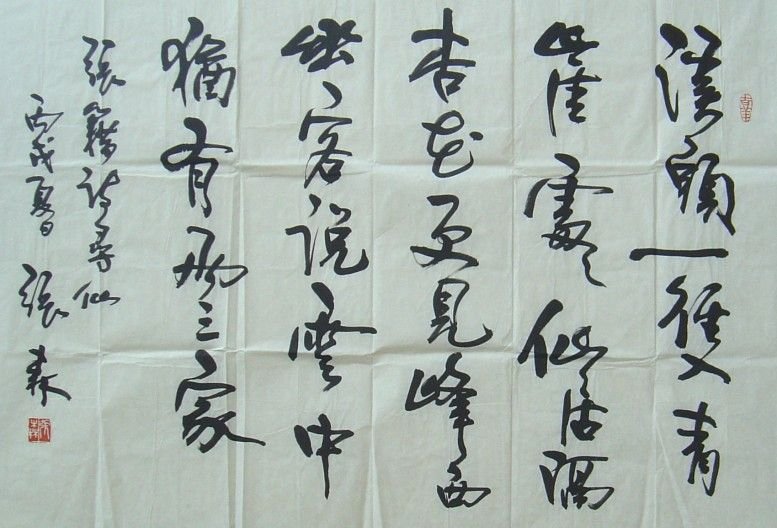 溪頭一徑入青
崖處々仙居隔
杏花更見峰西
幽客說雲中
猶有兩三家
張籍詩尋仙
丙戌夏日 張森